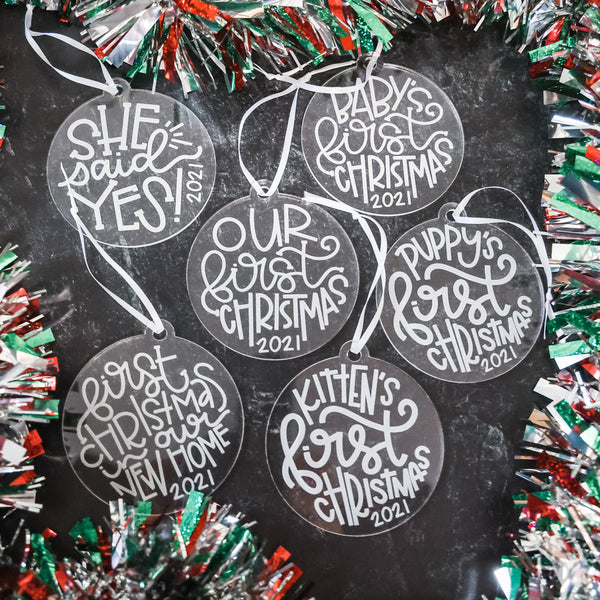 SHE
said
YES!
2021
BABY'S
first
CHRISTMAS
2021
OUR
first
CHRISTMAS
2021
PUPPY'S
first
CHRISTMAS
2021
first
CHRISTMAS
in our
NEW HOME
2021
KITTEN'S
first
CHRISTMAS
2021